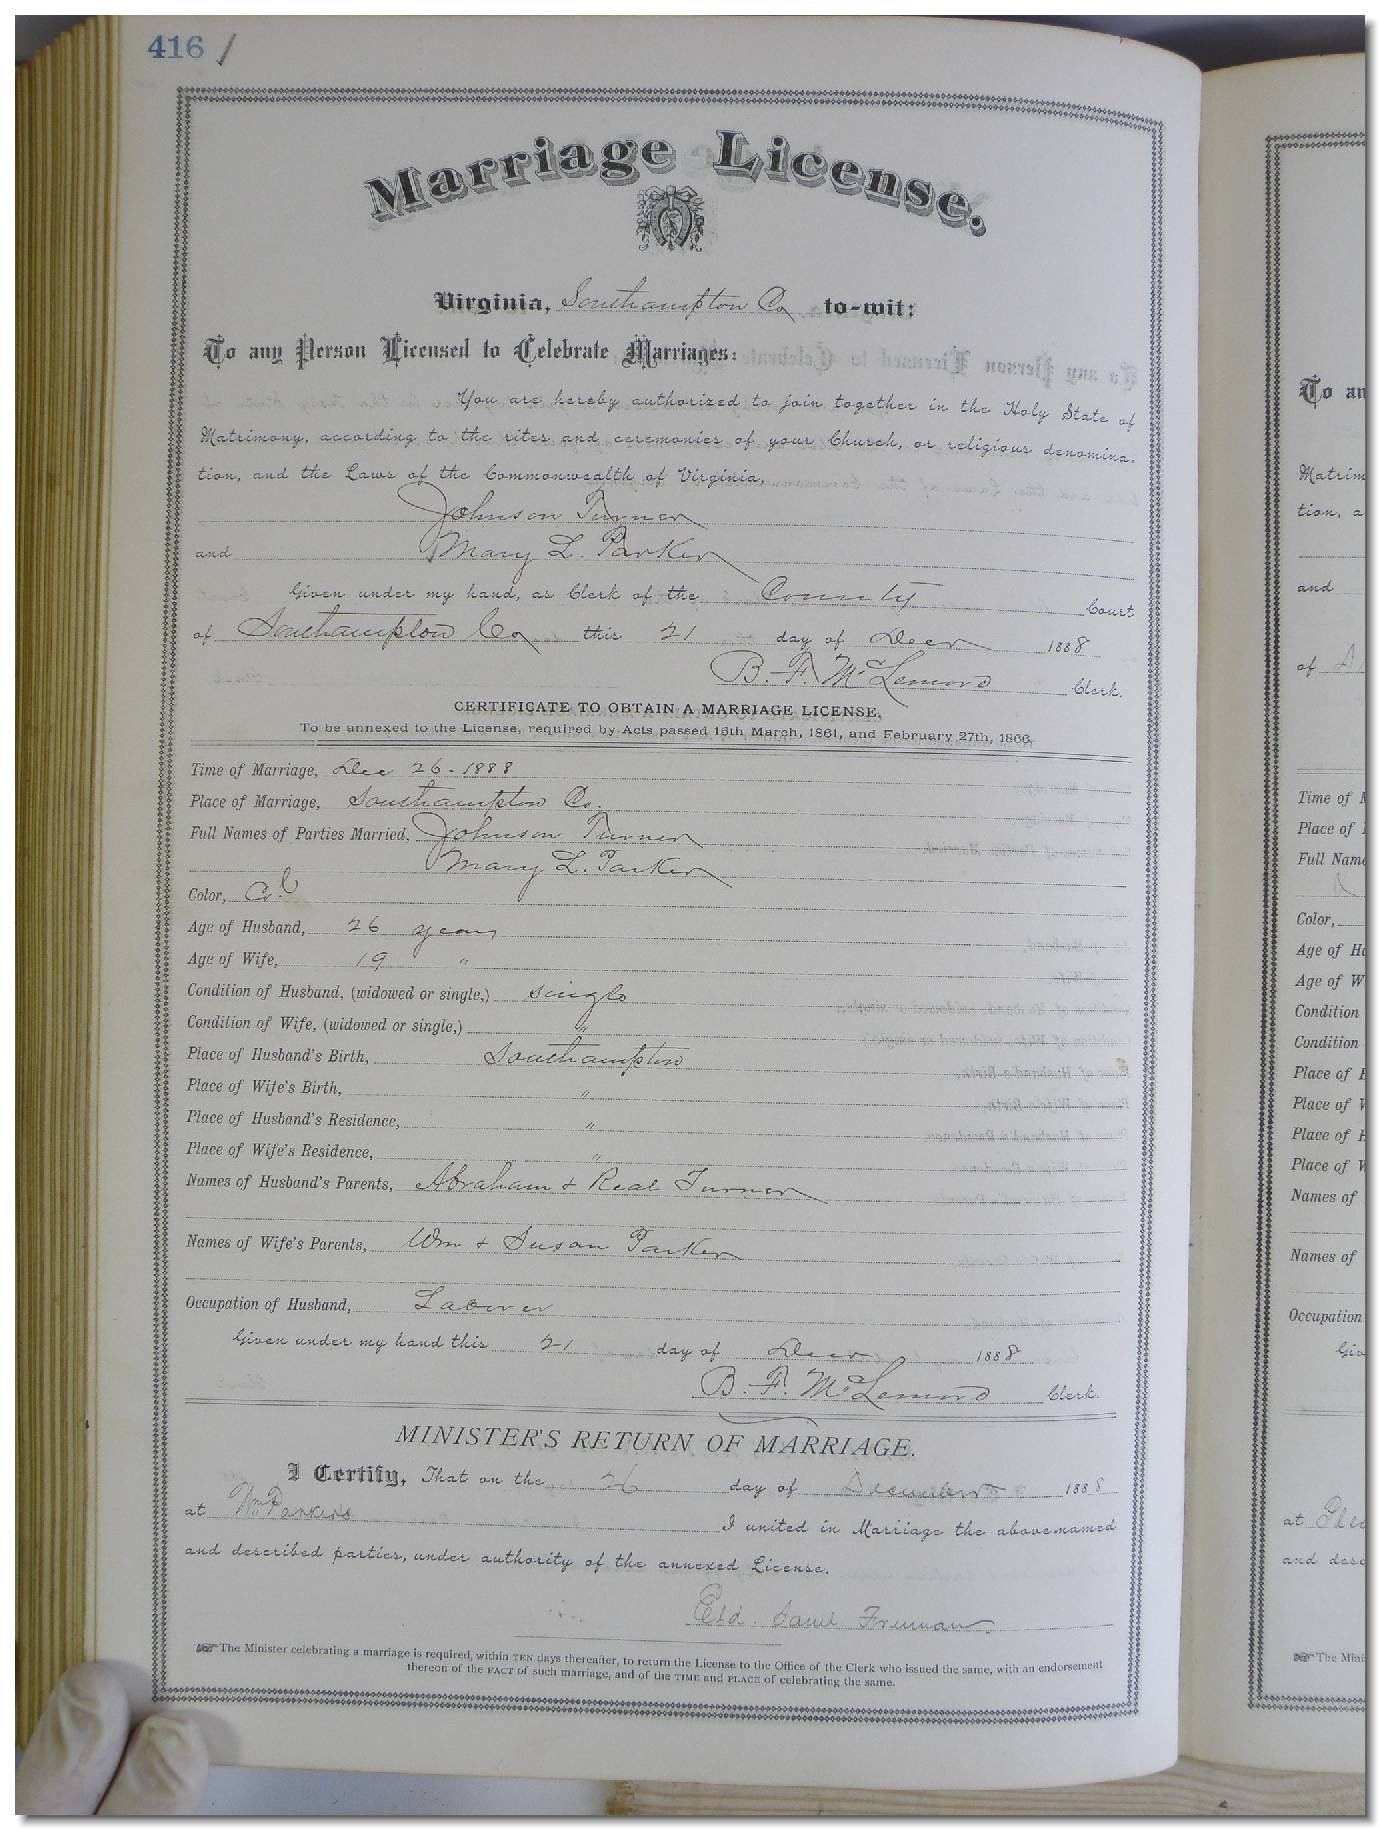 416 /
Marriage License.
Virginia, Southampton Co to-wit:
To any Person Licensed to Celebrate Marriages:
You are hereby authorized to join together in the Holy State of
Matrimony, according to the rites and ceremonies of your Church, or religious denomina-
tion, and the Laws of the Commonwealth of Virginia,
Johnson Turner
and Mary L. Parker
Given under my hand, as Clerk of the County Court
of Southampton Co this 21 day of Decr 1888
B. F. McLemore Clerk.
CERTIFICATE TO OBTAIN A MARRIAGE LICENSE,
To be annexed to the License, required by Acts passed 15th March, 1861, and February 27th, 1866.
Time of Marriage, Dec 26 - 1888
Place of Marriage, Southampton Co.
Full Names of Parties Married, Johnson Turner
Mary L. Parker
Color, Col
Age of Husband, 26 years
Age of Wife, 19 "
Condition of Husband, (widowed or single,) single
Condition of Wife, (widowed or single,) "
Place of Husband's Birth, Southampton
Place of Wife's Birth, "
Place of Husband's Residence, "
Place of Wife's Residence, "
Names of Husband's Parents, Abraham + Real Turner
Names of Wife's Parents, Wm + Susan Parker
Occupation of Husband, Laborer
Given under my hand this 21 day of Decr 1888
B. F. McLemore Clerk.
MINISTER'S RETURN OF MARRIAGE.
I Certify, That on the 26 day of December 1888
at Wm Parkers I united in Marriage the above-named
and described parties, under authority of the annexed License.
Eld. Saml Freeman
The Minister celebrating a marriage is required, within TEN days thereafter, to return the License to the Office of the Clerk who issued the same, with an endorsement
thereon of the FACT of such marriage, and of the TIME and PLACE of celebrating the same.
To an
Matrim
tion, a
and
of
Time of
Place of
Full Name
Color,
Age of Hu
Age of W
Condition
Condition
Place of H
Place of W
Place of H
Place of W
Names of
Names of
Occupation
Giv
at
and desc
The Mini